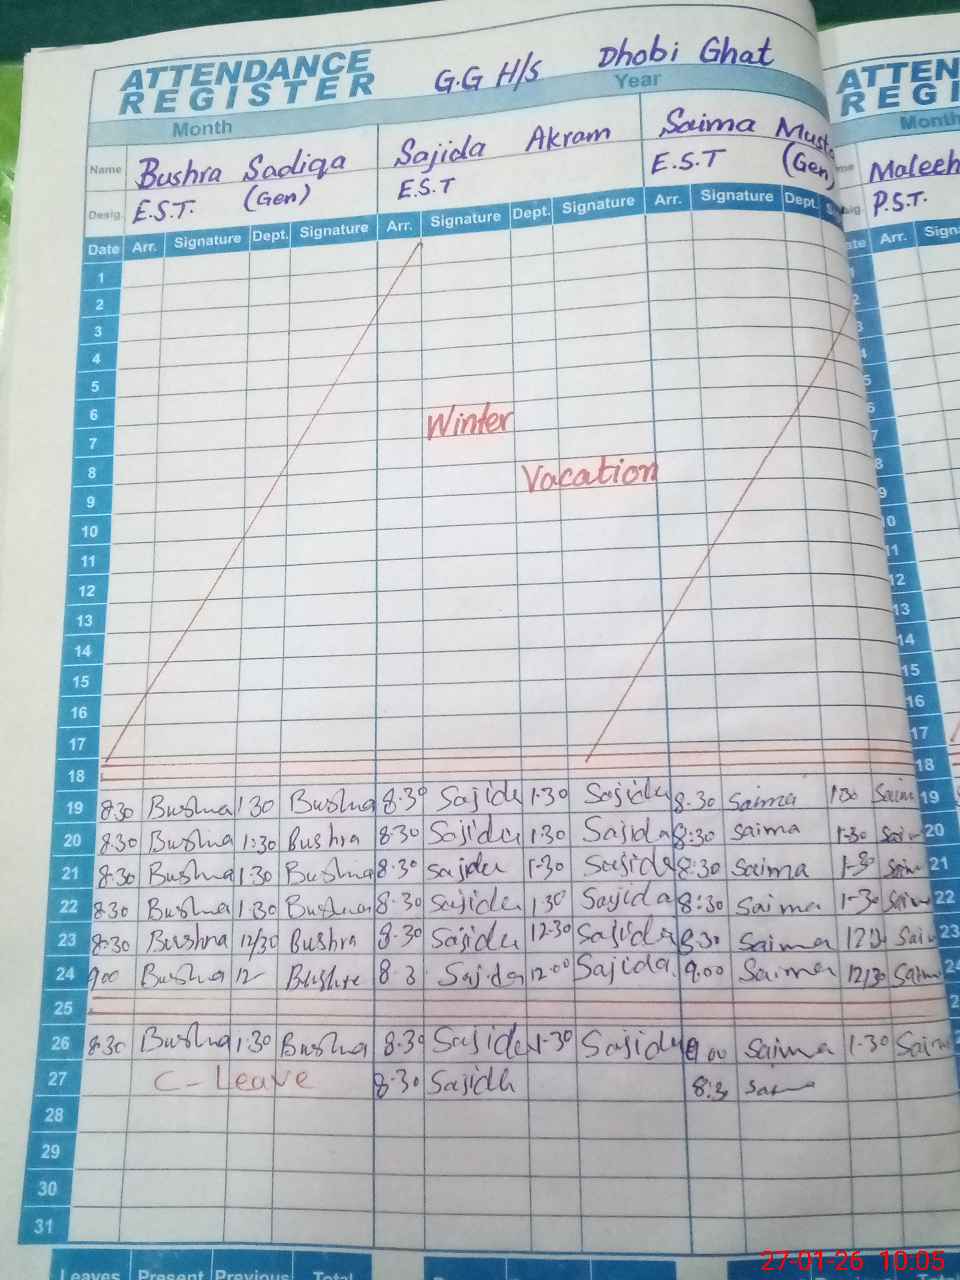 ATTENDANCE REGISTER G.G H/S Dhobi Ghat
Month Year
Name Bushra Sadiqa Sajida Akram Saima
Desig. E.S.T. (Gen) E.S.T E.S.T (Gen)
Date Arr. Signature Dept. Signature Arr. Signature Dept. Signature Arr. Signature Dept.
1
2
3
4
5
6 Winter
7
8 Vacation
9
10
11
12
13
14
15
16
17
18
19 8:30 Bushra 1:30 Bushra 8:30 Sajida 1:30 Sajida 8:30 Saima 1:30
20 8:30 Bushra 1:30 Bushra 8:30 Sajida 1:30 Sajida 8:30 Saima 1-30
21 8:30 Bushra 1:30 Bushra 8:30 Sajida 1-30 Sajida 8:30 Saima 1-30
22 8:30 Bushra 1:30 Bushra 8:30 Sajida 1:30 Sajida 8:30 Saima 1-30
23 8:30 Bushra 12/30 Bushra 8:30 Sajida 12-30 Sajida 8:30 Saima
24 9.00 Bushra 12 Bushra 8 3 Sajida 12:00 Sajida 9.00 Saima 12/30
25
26 8:30 Bushra 1:30 Bushra 8:30 Sajida 1-30 Sajida 9 00 Saima 1-30
27 C-Leave 8:30 Sajida 8:3
28
29
30
31
Leaves Present Previous Total
ATTEN
REGI
Month
Maleeh
P.S.T.
Arr. Sign
2
3
5
6
7
8
9
10
11
12
13
14
15
16
17
18
19
20
21
22
23
24
27-01-26 10:05